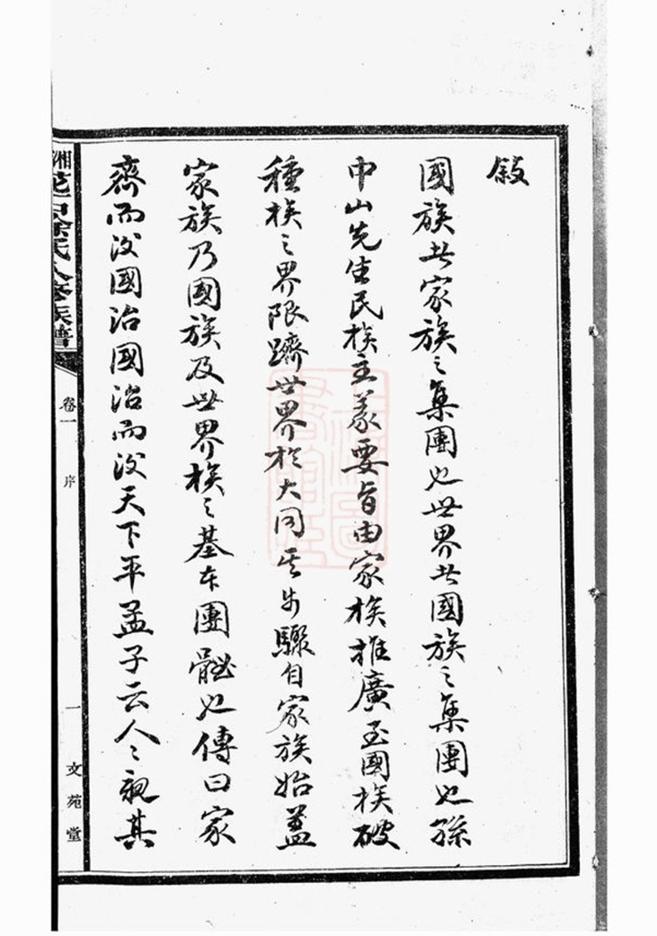 敘
國族者家族之集團也世界者國族之集團也孫
中山先生民族主義要旨由家族推廣至國族破
種族之界限躋世界於大同其步驟自家族始蓋
家族乃國族及世界族之基本團體也傳曰家
齊而後國治國治而後天下平孟子云人々親其
湘 氏 修族譜
卷一
序
一
文苑堂